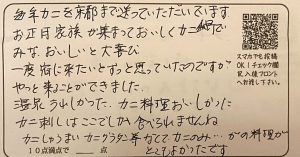 毎年カニを京都まで送っていただいています
お正月家族が集まっておいしくカニ鍋で
みなおいしいと大喜び
一度宿に来たいとずっと思っていたのですが
やっと来ることができました
温泉うれしかった。カニ料理おいしかった
カニ刺しはここでしか食べられませんね
カニしゅうまいカニグラタン等などてカニのみ…がの料理が
とてもよかったです
10点満点で 点
スマホでも投稿
OK！チェック欄
記入後フロント
へお渡し下さい。